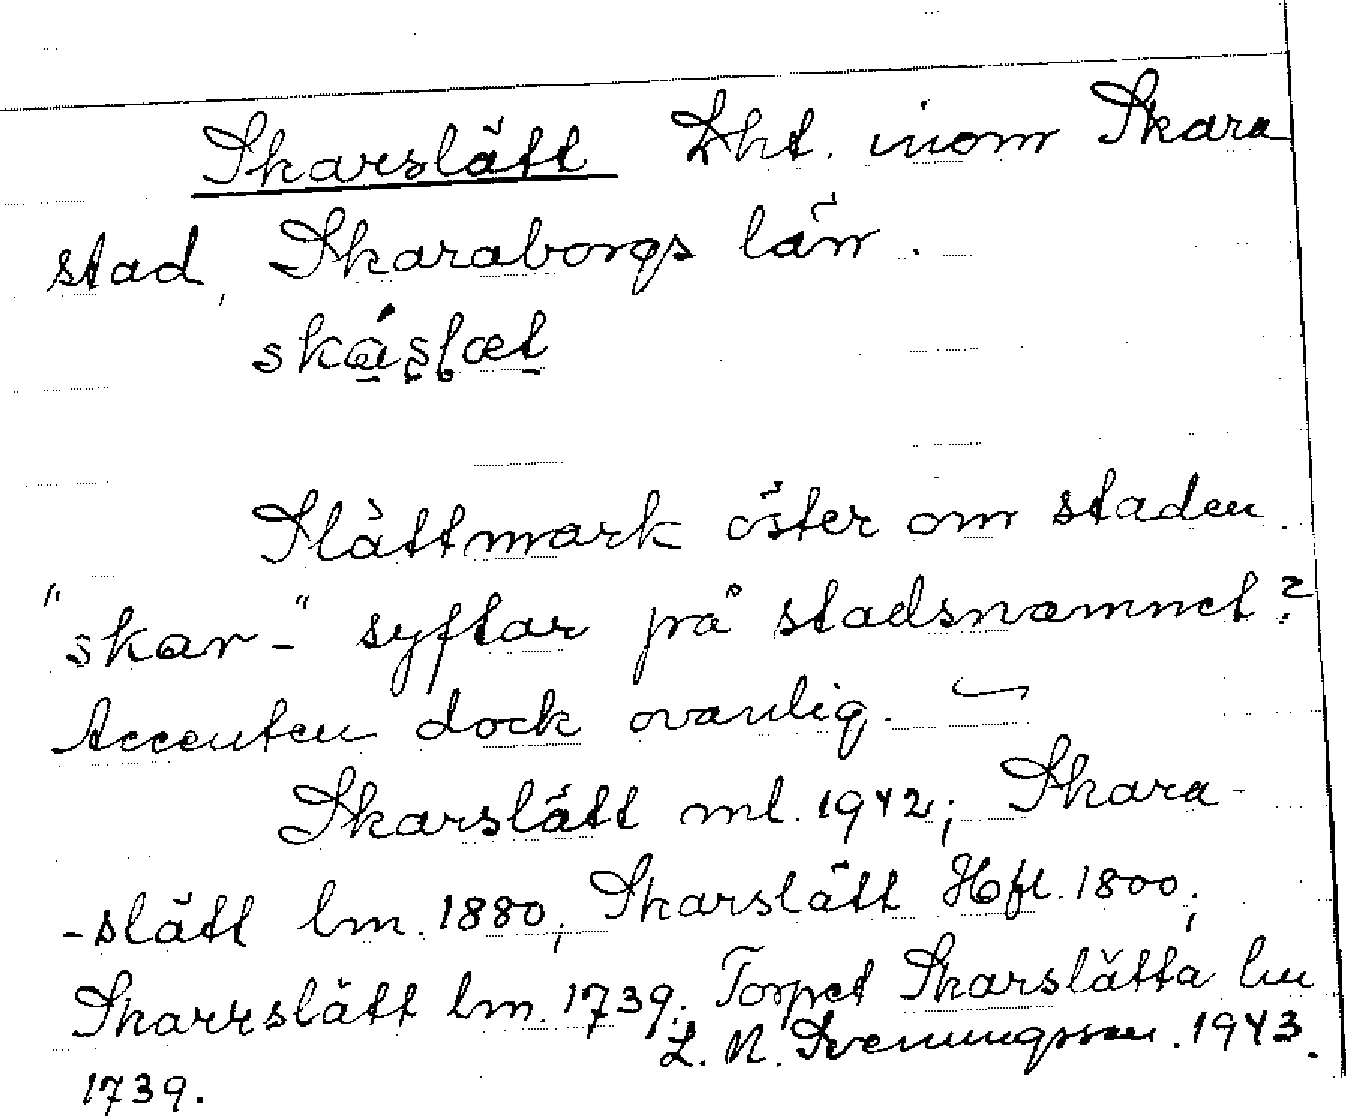 Skarslätt Lht. inom Skara
stad, Skaraborgs län.
skáslæt
Slättmark öster om staden.
"skar-" syftar på stadsnamnet?
Accenten dock ovanlig. –
Skarslätt ml. 1942; Skara-
-slätt lm. 1880; Skarslätt Hfl. 1800;
Skarrslätt lm. 1739; Torpet Skarslätta lm
1739.
L. N. Svenungsson. 1943.